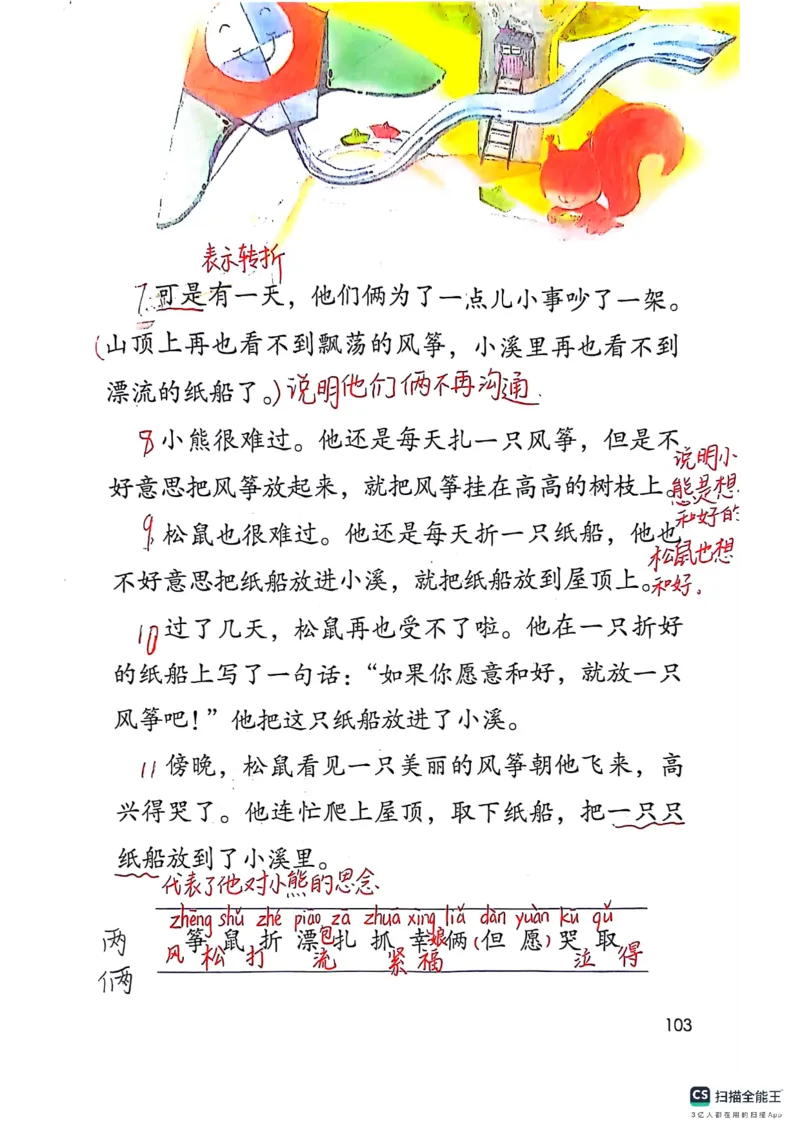 表示转折
7 可是有一天，他们俩为了一点儿小事吵了一架。
(山顶上再也看不到飘荡的风筝，小溪里再也看不到
漂流的纸船了。)说明他们俩不再沟通.
8 小熊很难过。他还是每天扎一只风筝，但是不
好意思把风筝放起来，就把风筝挂在高高的树枝上。
说明小
熊是想
和好的
9 松鼠也很难过。他还是每天折一只纸船，他也
不好意思把纸船放进小溪，就把纸船放到屋顶上。
松鼠也想
和好.
10 过了几天，松鼠再也受不了啦。他在一只折好
的纸船上写了一句话：“如果你愿意和好，就放一只
风筝吧！”他把这只纸船放进了小溪。
11 傍晚，松鼠看见一只美丽的风筝朝他飞来，高
兴得哭了。他连忙爬上屋顶，取下纸船，把一只只
纸船放到了小溪里。
代表了他对小熊的思念
zhēng shǔ zhé piāo zā zhuā xìng liǎ dàn yuàn kū qǔ
两 筝 鼠 折 漂 包扎 抓 幸 娘俩(但 愿)哭 取
风 松 打 流 紧 福 泣 得
俩
103
CS 扫描全能王
3亿人都在用的扫描App